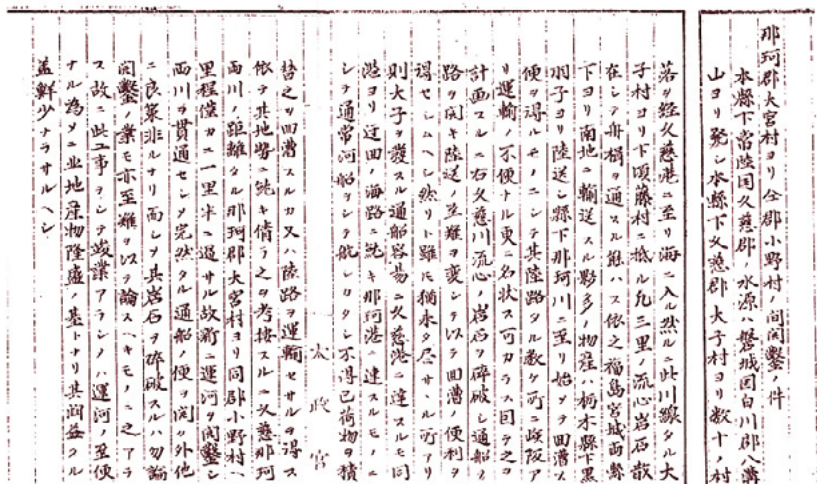 那珂郡大宮村ヨリ仝郡小野村ノ間開鑿ノ件
本縣下常陸国久慈郡ノ水源ハ磐城国白川郡八溝
山ヨリ発シ本縣下久慈郡大子村ヨリ数十ノ村
落ヲ経久慈港ニ至リ海ニ入ル然ルニ此川線タル大
子村ヨリ下頃藤村ニ抵ル凡三里ノ流心岩石散
在シテ舟楫ヲ通スル能ハス依之福島宮城両縣
下ヨリ南地ニ輸送スル夥多ノ物産ハ栃木縣下黒
羽子ヨリ陸送シ縣下那珂川ニ至リ始テ回漕ス
便ヲ得ルモノニシテ其陸路タル数ケ所ニ嶮阪ア
リ運輸ノ不便ナル更ニ名状ス可カラス因テ之ヲ
計画スルニ右久慈川流心ノ岩石ヲ碎破シ通船ノ
路ヲ開キ陸送ノ至難ヲ変シテ以テ回漕ノ便利ヲ
得セシムヘシ然リト雖モ猶未タ尽サヽル所アリ
則大子ヲ發スル通船容易ニ久慈港ニ達スルモ同
港ヨリ迂回ノ海路ニ就キ那珂港ニ連スルモノニ
シテ通常河船ヲシテ航シカタシ不得已荷物ヲ積
太政官
替之ヲ回漕スルカ又ハ陸路ヲ運輸セサルヲ得ス
依テ其地勢ニ就キ倩々之ヲ考按スルニ久慈那珂
両川ノ距離タル那珂郡大宮村ヨリ同郡小野村ヘ
里程僅カニ一里半ニ過サル故新ニ運河ヲ開鑿シ
両川ヲ貫通セシメ完然タル通船ノ便ヲ開ク外他
ニ良策非ルナリ而シテ其岩石ヲ碎破スルハ勿論
開鑿ノ業モ亦至難ヲ以テ論スヘキモノニ之アラ
ス故ニ此工事ヲシテ竣業アラシメハ運河ノ至便
ナル為メニ此地産物隆盛ノ基トナリ其潤益タル
盖鮮少ナラサルヘシ